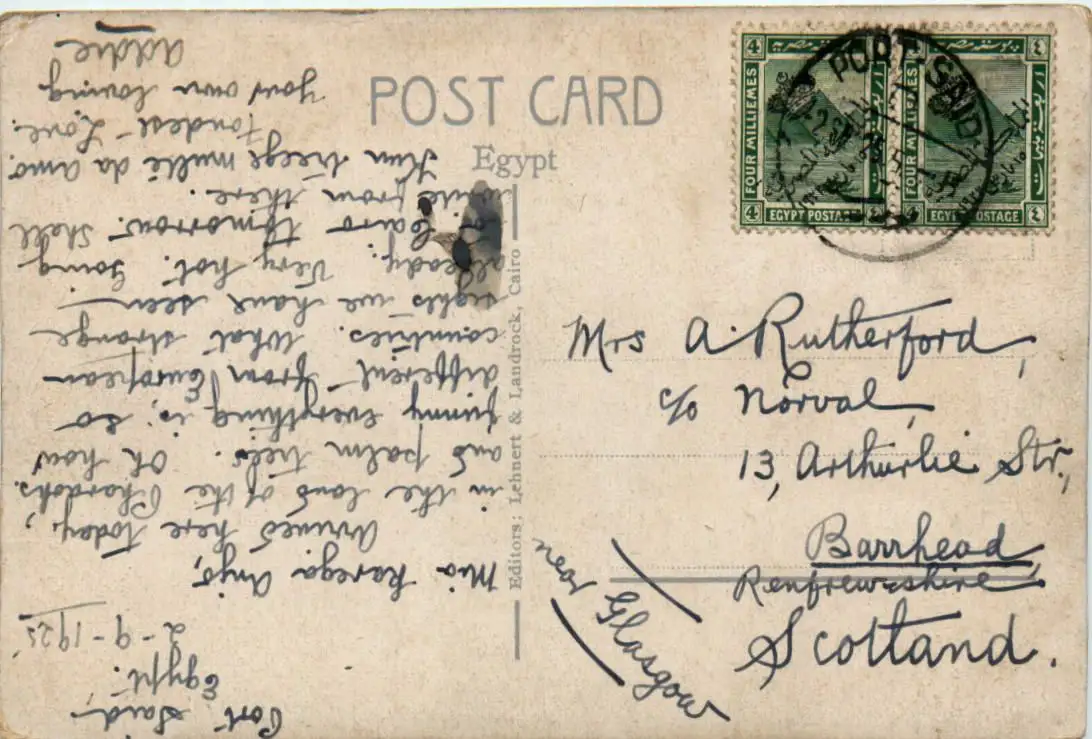 POST CARD
Egypt
FOUR MILLIEMES
4
EGYPT POSTAGE
٤
FOUR MILLIEMES
4
EGYPT POSTAGE
٤
PORT-SAID
Port Said,
Egypt.
2-9-1925
Mia karega Anjo,
Arrived here today,
in the land of the Pharaohs.
and palm trees. Oh how
funny everything is, so
different from European
countries. What strange
sights we have seen
already. Very hot. Going
Cairo tomorrow. Shell
write from there.
Kun treege multe da amo.
Fondest Love.
Your own loving
Addie
Editors: Lehnert & Landrock, Cairo
Mrs A. Rutherford,
c/o Norval,
13, Arthurlie Str,
Barrhead,
Renfrewshire
near Glasgow
Scotland.